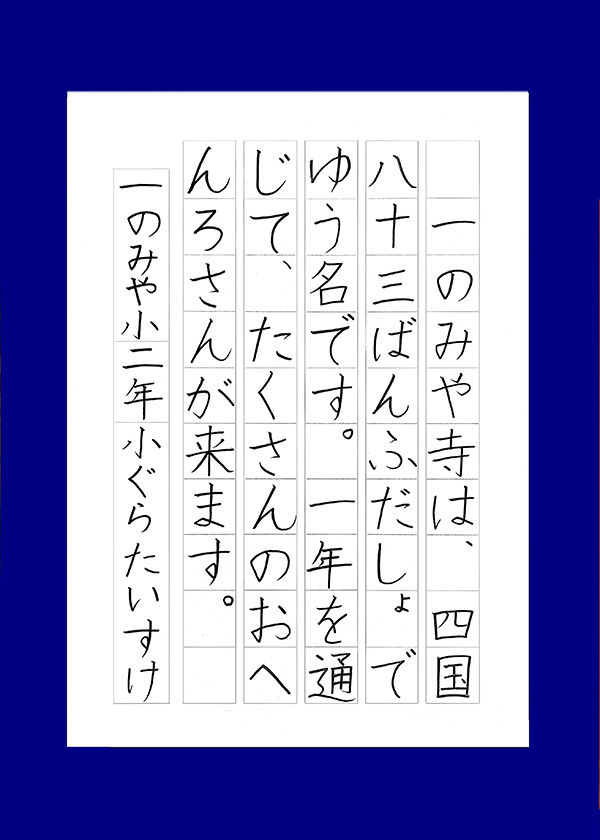 一のみや寺は、四国
八十三ばんふだしょで
ゆう名です。一年を通
じて、たくさんのおへ
んろさんが来ます。
一のみや小二年小ぐらたいすけ